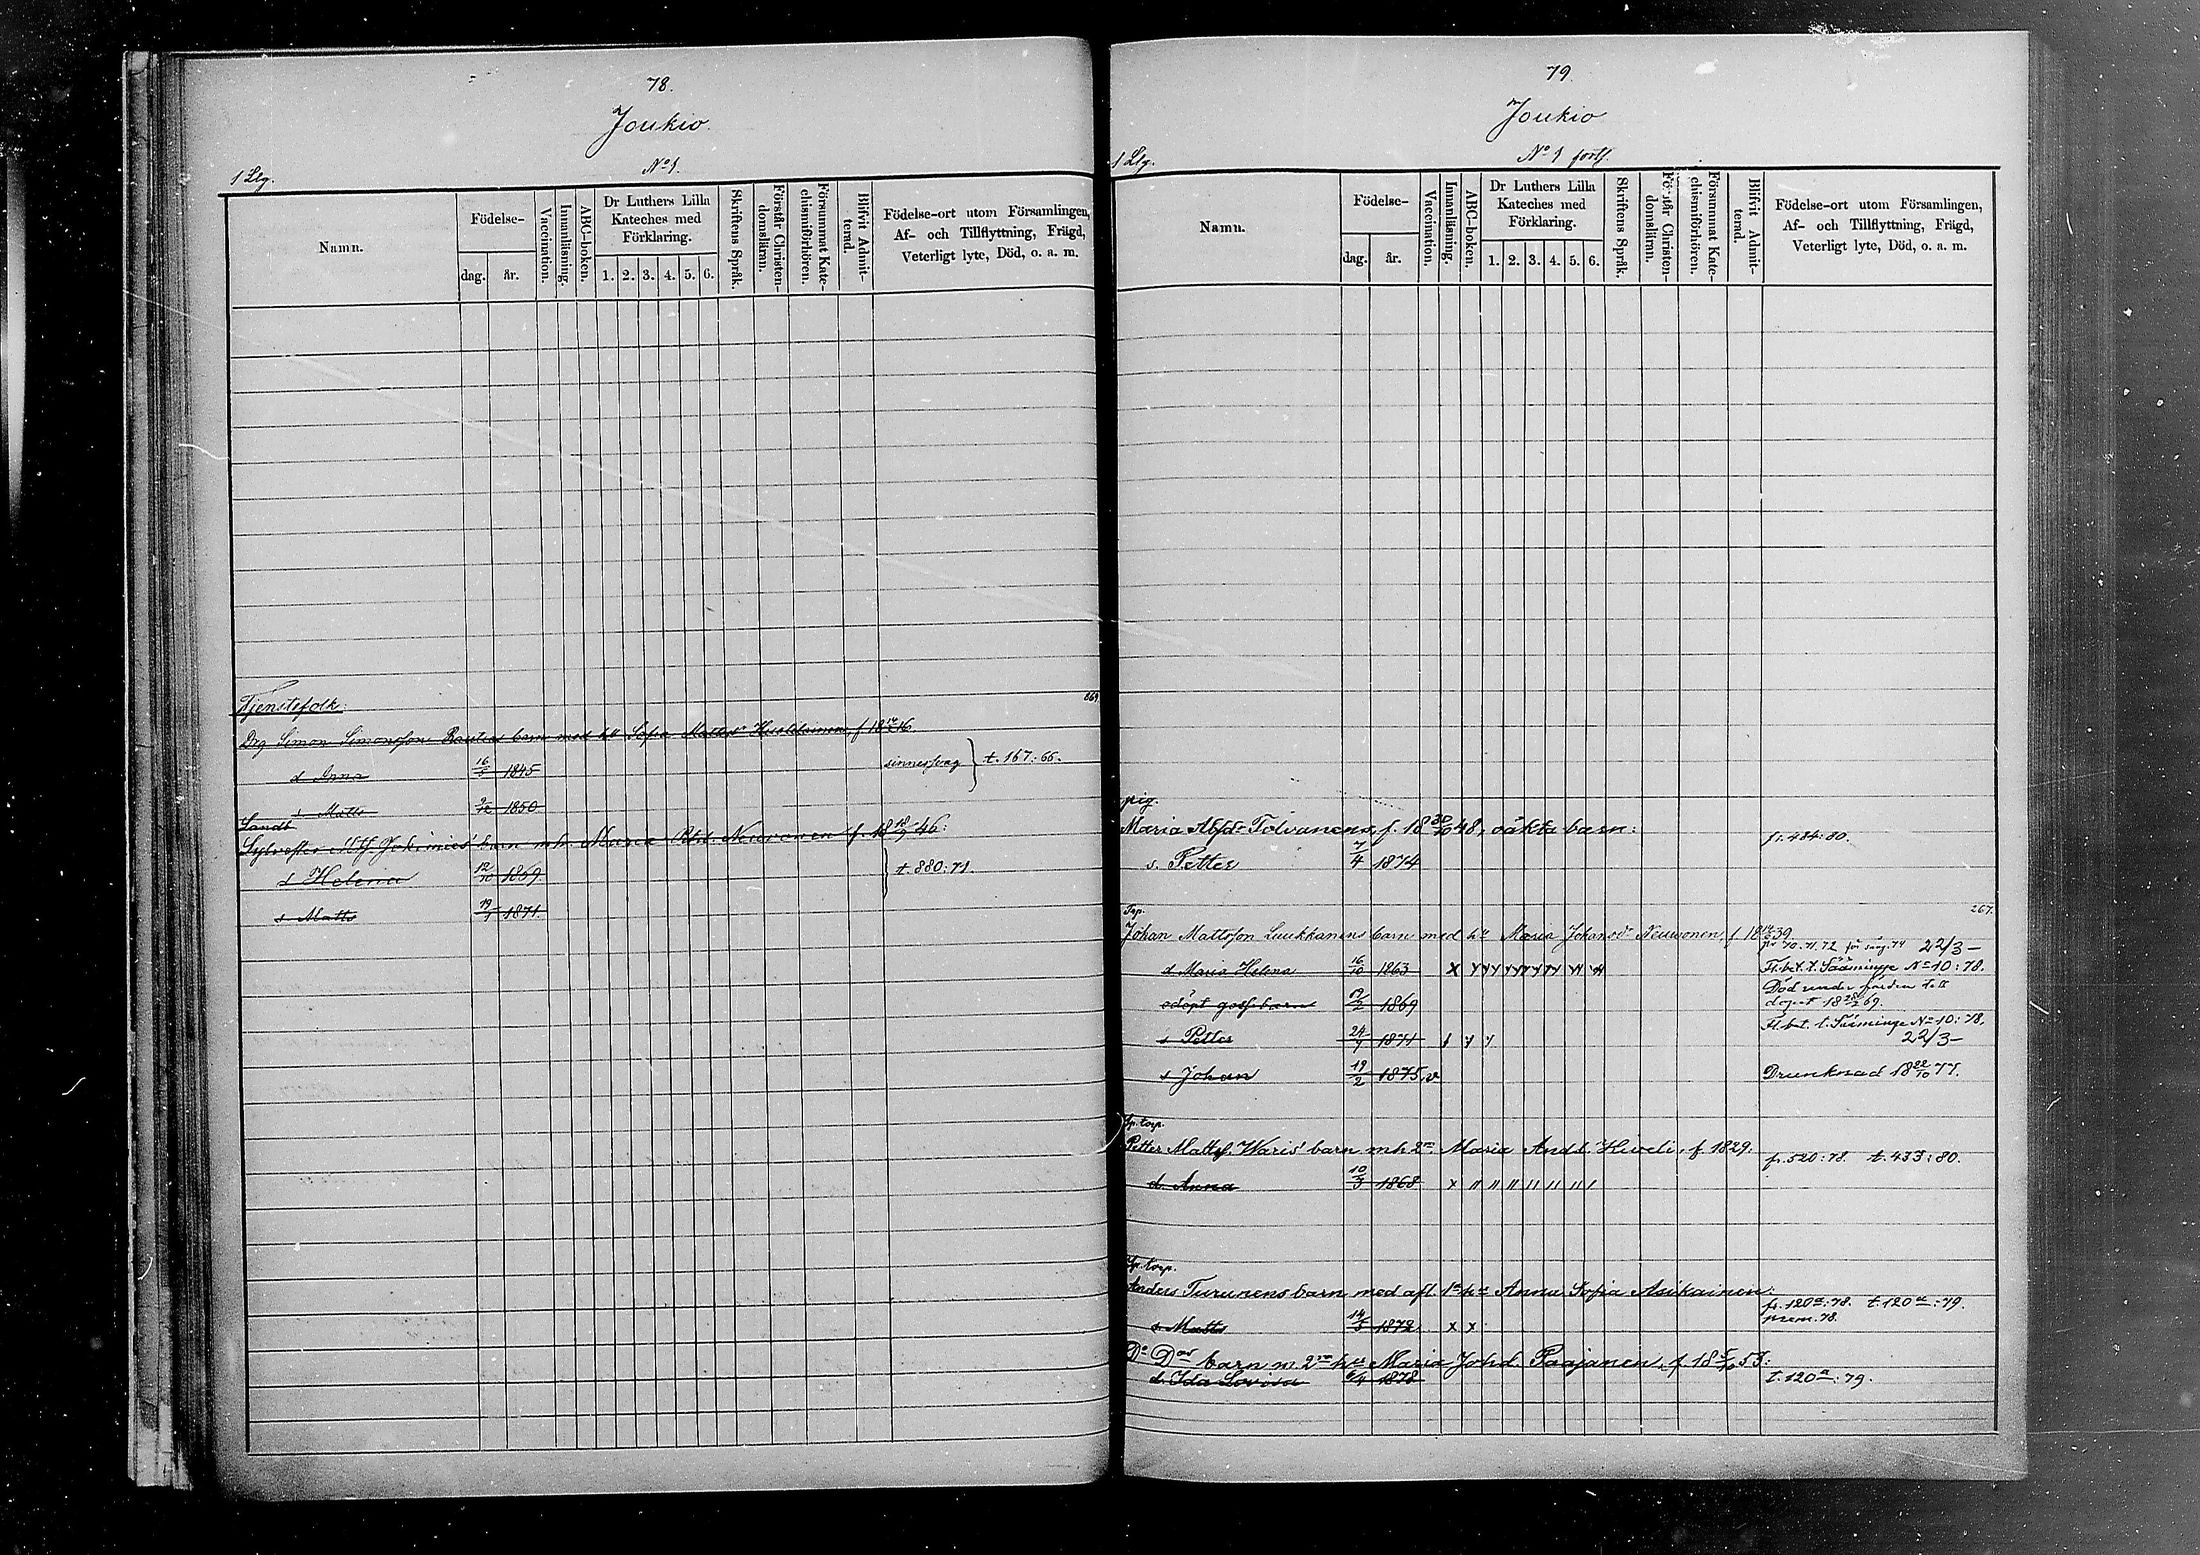 78.
Joukio.
1 Ltg.
No 1.
Namn.
Födelse-
dag.
år.
Vaccination.
Innanläsning.
ABC-boken.
Dr Luthers Lilla
Kateches med
Förklaring.
1. 2. 3. 4. 5. 6.
Skriftens Språk.
Förstår Christen-
domsläran.
Försummat Kate-
chismiförhören.
Blifvit Admit-
terad.
Födelse-ort utom Församlingen,
Af- och Tillflyttning, Frägd,
Veterligt lyte, Död, o. a. m.
Tjenstefolk:
Drg Simon Simonsson barn med hu Sofia Mattsdr
d Anna 16/5 1845 sinnessvag } t. 167:66.
s Matts 1850
Landb
barn mh. Maria Neuvonen f. 18 18/7 46:
d Helena 12/10 1869 t. 880:71.
s Matts 19/7 1871.
79.
Joukio
1 Ltg.
No 1 forts.
Namn.
Födelse-
dag.
år.
Vaccination.
Innanläsning.
ABC-boken.
Dr Luthers Lilla
Kateches med
Förklaring.
1. 2. 3. 4. 5. 6.
Skriftens Språk.
Förstår Christen-
domsläran.
Försummat Kate-
chismiförhören.
Blifvit Admit-
terad.
Födelse-ort utom Församlingen,
Af- och Tillflyttning, Frägd,
Veterligt lyte, Död, o. a. m.
pig.
Maria Absdr Tolvanens, f. 18 30/10 48, oäkta barn: fr. 484:80.
s. Petter 7/4 1874
Trp. 267.
Johan Mattsson Luukkanens barn med hu Maria Johansdr Neuvonen, f 18 39
22/3-
d Maria Helena 16/10 1863 Fl. bet. t. Sääminge No 10:78.
odöpt gossebarn 19/2 1869 Död under färden till
dopet 18 28/2 69.
s Petter 24/7 1871 Fl. bet. t. Sääminge No 10:78.
22/3-
s Johan 19/2 1875 v Drunknad 18 22/10 77.
Sp. torp.
Petter Matts. Waris' barn mh 2an Maria Andd. Hiveli, f. 1829: fr. 520:78. t. 433:80.
d. Anna 10/3 1868
Sp. torp.
Anders Turunens barn med afl 1a hu Anna Sofia Asikainen: fr. 120a:78. t. 120a:79.
s. Matts 14/5 1872 x x
Do Dos barn m. 2an hu Maria Johd. Paajanen, f. 18 53:
d. Ida Lovisa 1878 t. 120a:79.